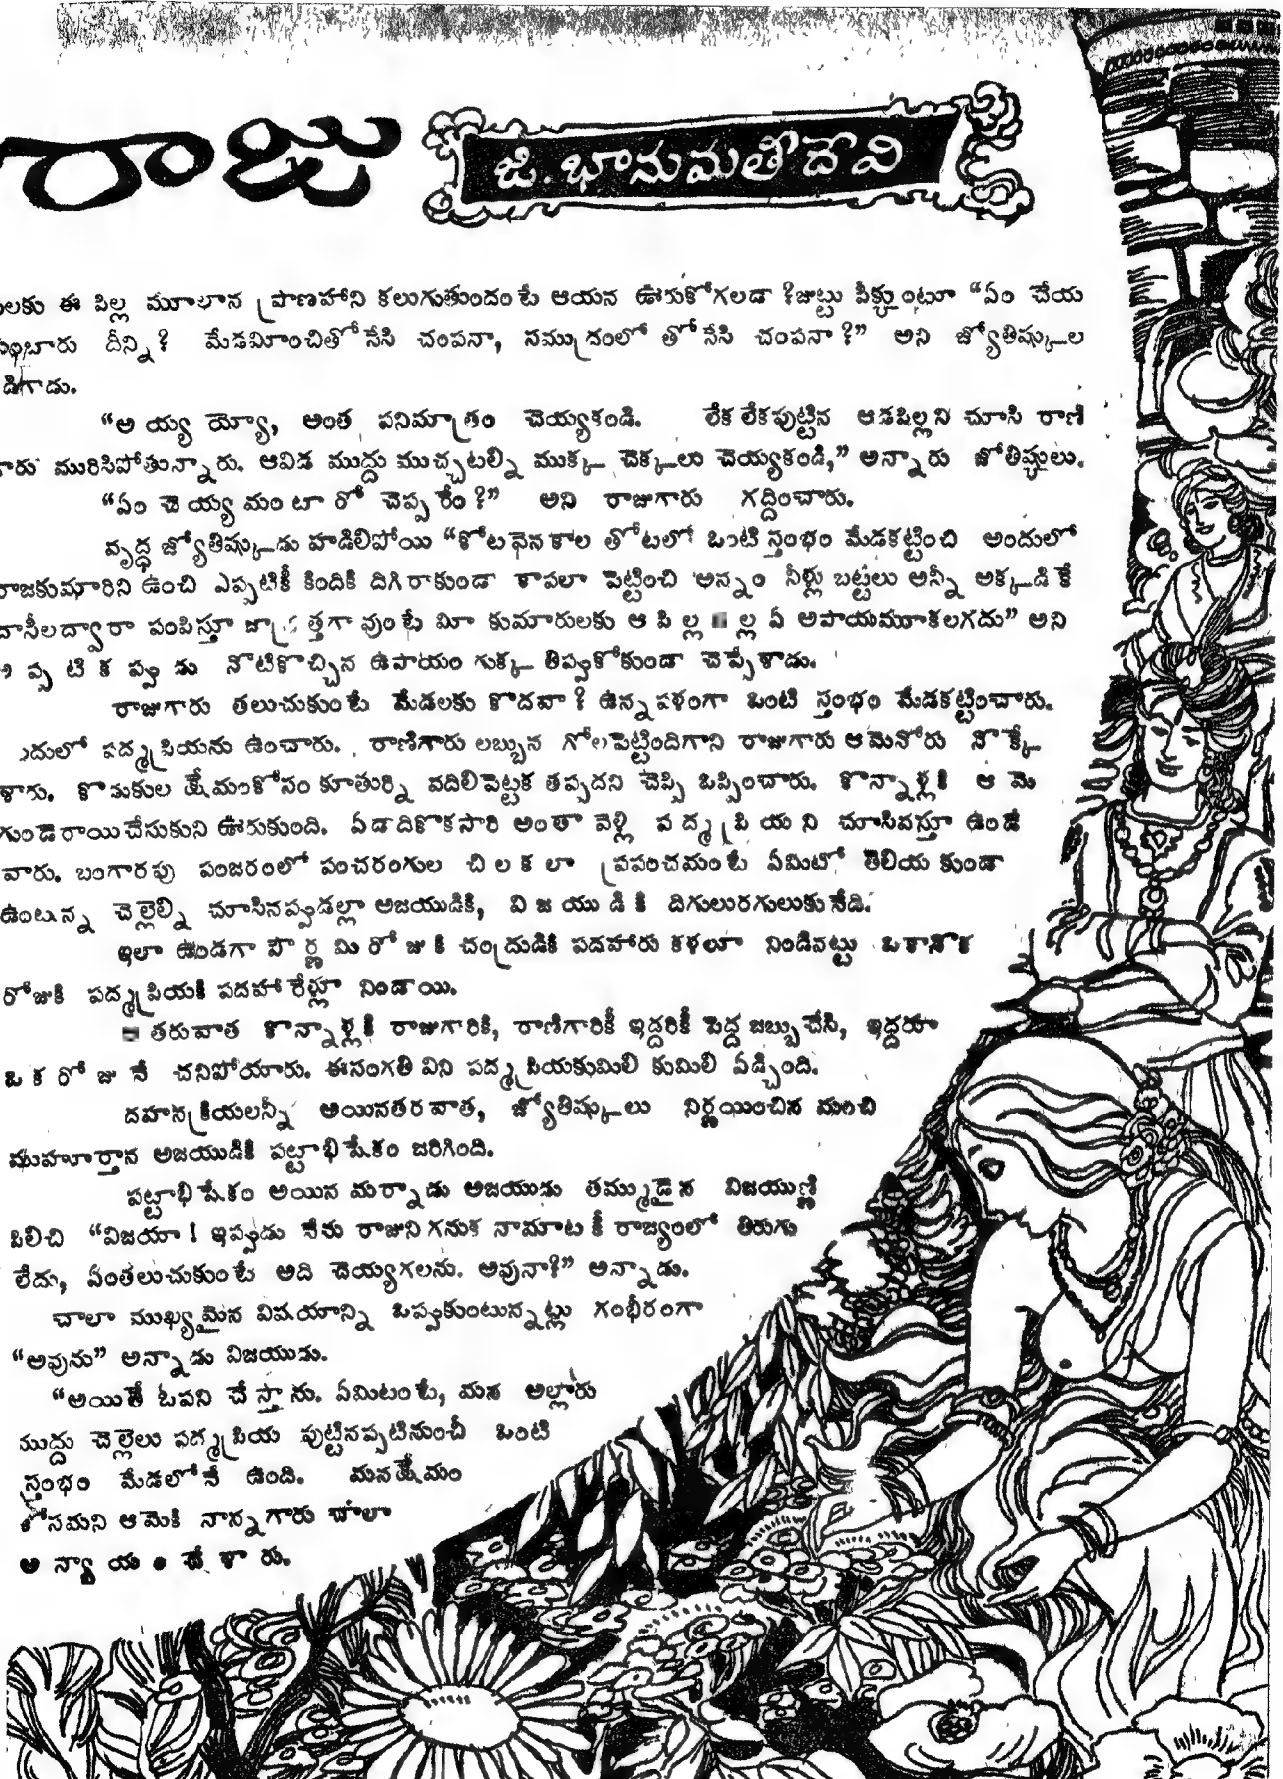 రాజు
జి. భానుమతీదేవి
ఈ పిల్ల మూలాన ప్రాణహాని కలుగుతుందంటే ఆయన ఊరుకోగలడా ? జుట్టు పీక్కుంటూ “ఏం చేయ
మంటారు దీన్ని? మేడమీంచితోసేసి చంపనా, సముద్రంలో తోసేసి చంపనా ?” అని జ్యోతిష్కుల
డిగాడు.
“అయ్యయ్యో, అంత పనిమాత్రం చెయ్యకండి. లేకలేకపుట్టిన ఆడపిల్లని చూసి రాణి
గారు మురిసిపోతున్నారు. ఆవిడ ముద్దు ముచ్చటల్ని ముక్క చెక్కలు చెయ్యకండి,” అన్నారు జ్యోతిష్కులు.
“ఏం చెయ్యమంటారో చెప్పరేం ?” అని రాజుగారు గద్దించారు.
వృద్ధ జ్యోతిష్కుడు హడిలిపోయి “కోటవెనకాల తోటలో ఒంటి స్తంభం మేడకట్టించి అందులో
రాజకుమారిని ఉంచి ఎప్పటికీ కిందికి దిగిరాకుండా కాపలా పెట్టించి అన్నం నీళ్లు బట్టలు అన్నీ అక్కడికే
దాసీలద్వారా పంపిస్తూ జాగ్రత్తగా వుంటే మీ కుమారులకు ఆ పిల్ల వల్ల ఏ అపాయమూకలగదు” అని
అప్పటికప్పుడు నోటికొచ్చిన ఉపాయం గుక్క తిప్పుకోకుండా చెప్పేశాడు.
రాజుగారు తలుచుకుంటే మేడలకు కొదవా ? ఉన్నపళంగా ఒంటి స్తంభం మేడకట్టించారు.
అందులో పద్మప్రియను ఉంచారు. రాణిగారు లబ్బున గోలపెట్టిందిగాని రాజుగారు ఆమెనోరు నొక్కే
శారు. కొడుకుల క్షేమంకోసం కూతుర్ని వదిలిపెట్టక తప్పదని చెప్పి ఒప్పించారు. కొన్నాళ్లకి ఆమె
గుండెరాయిచేసుకుని ఊరుకుంది. ఏడాదికొకసారి అంతా వెళ్లి పద్మప్రియని చూసివస్తూ ఉండే
వారు. బంగారపు పంజరంలో పంచరంగుల చిలకలా ప్రపంచమంటే ఏమిటో తెలియకుండా
ఉంటున్న చెల్లెల్ని చూసినప్పుడల్లా అజయుడికి, విజయుడికి దిగులురగులుకునేది.
ఇలా ఉండగా పౌర్ణమిరోజుకి చంద్రుడికి పదహారు కళలూ నిండినట్టు ఒకానొక
రోజుకి పద్మప్రియకి పదహారేళ్లూ నిండాయి.
తరువాత కొన్నాళ్లకి రాజుగారికి, రాణిగారికీ ఇద్దరికీ పెద్ద జబ్బుచేసి, ఇద్దరూ
ఒకరోజునే చనిపోయారు. ఈసంగతి విని పద్మప్రియకుమిలి కుమిలి ఏడ్చింది.
దహనక్రియలన్నీ అయినతరవాత, జ్యోతిష్కులు నిర్ణయించిన మంచి
ముహూర్తాన అజయుడికి పట్టాభిషేకం జరిగింది.
పట్టాభిషేకం అయిన మర్నాడు అజయుడు తమ్ముడైన విజయుణ్ణి
పిలిచి “విజయా ! ఇప్పుడు నేను రాజుని గనుక నామాటకీ రాజ్యంలో తిరుగు
లేదు, ఏంతలుచుకుంటే అది చెయ్యగలను. అవునా?” అన్నాడు.
చాలా ముఖ్యమైన విషయాన్ని ఒప్పుకుంటున్నట్లు గంభీరంగా
“అవును” అన్నాడు విజయుడు.
“అయితే ఓపని చేస్తాను. ఏమిటంటే, మన అల్లారు
ముద్దు చెల్లెలు పద్మప్రియ పుట్టినప్పటినుంచీ ఒంటి
స్తంభం మేడలోనే ఉంది. మనక్షేమం
కోసమని ఆమెకి నాన్నగారు చాలా
అన్యాయం చేశారు.